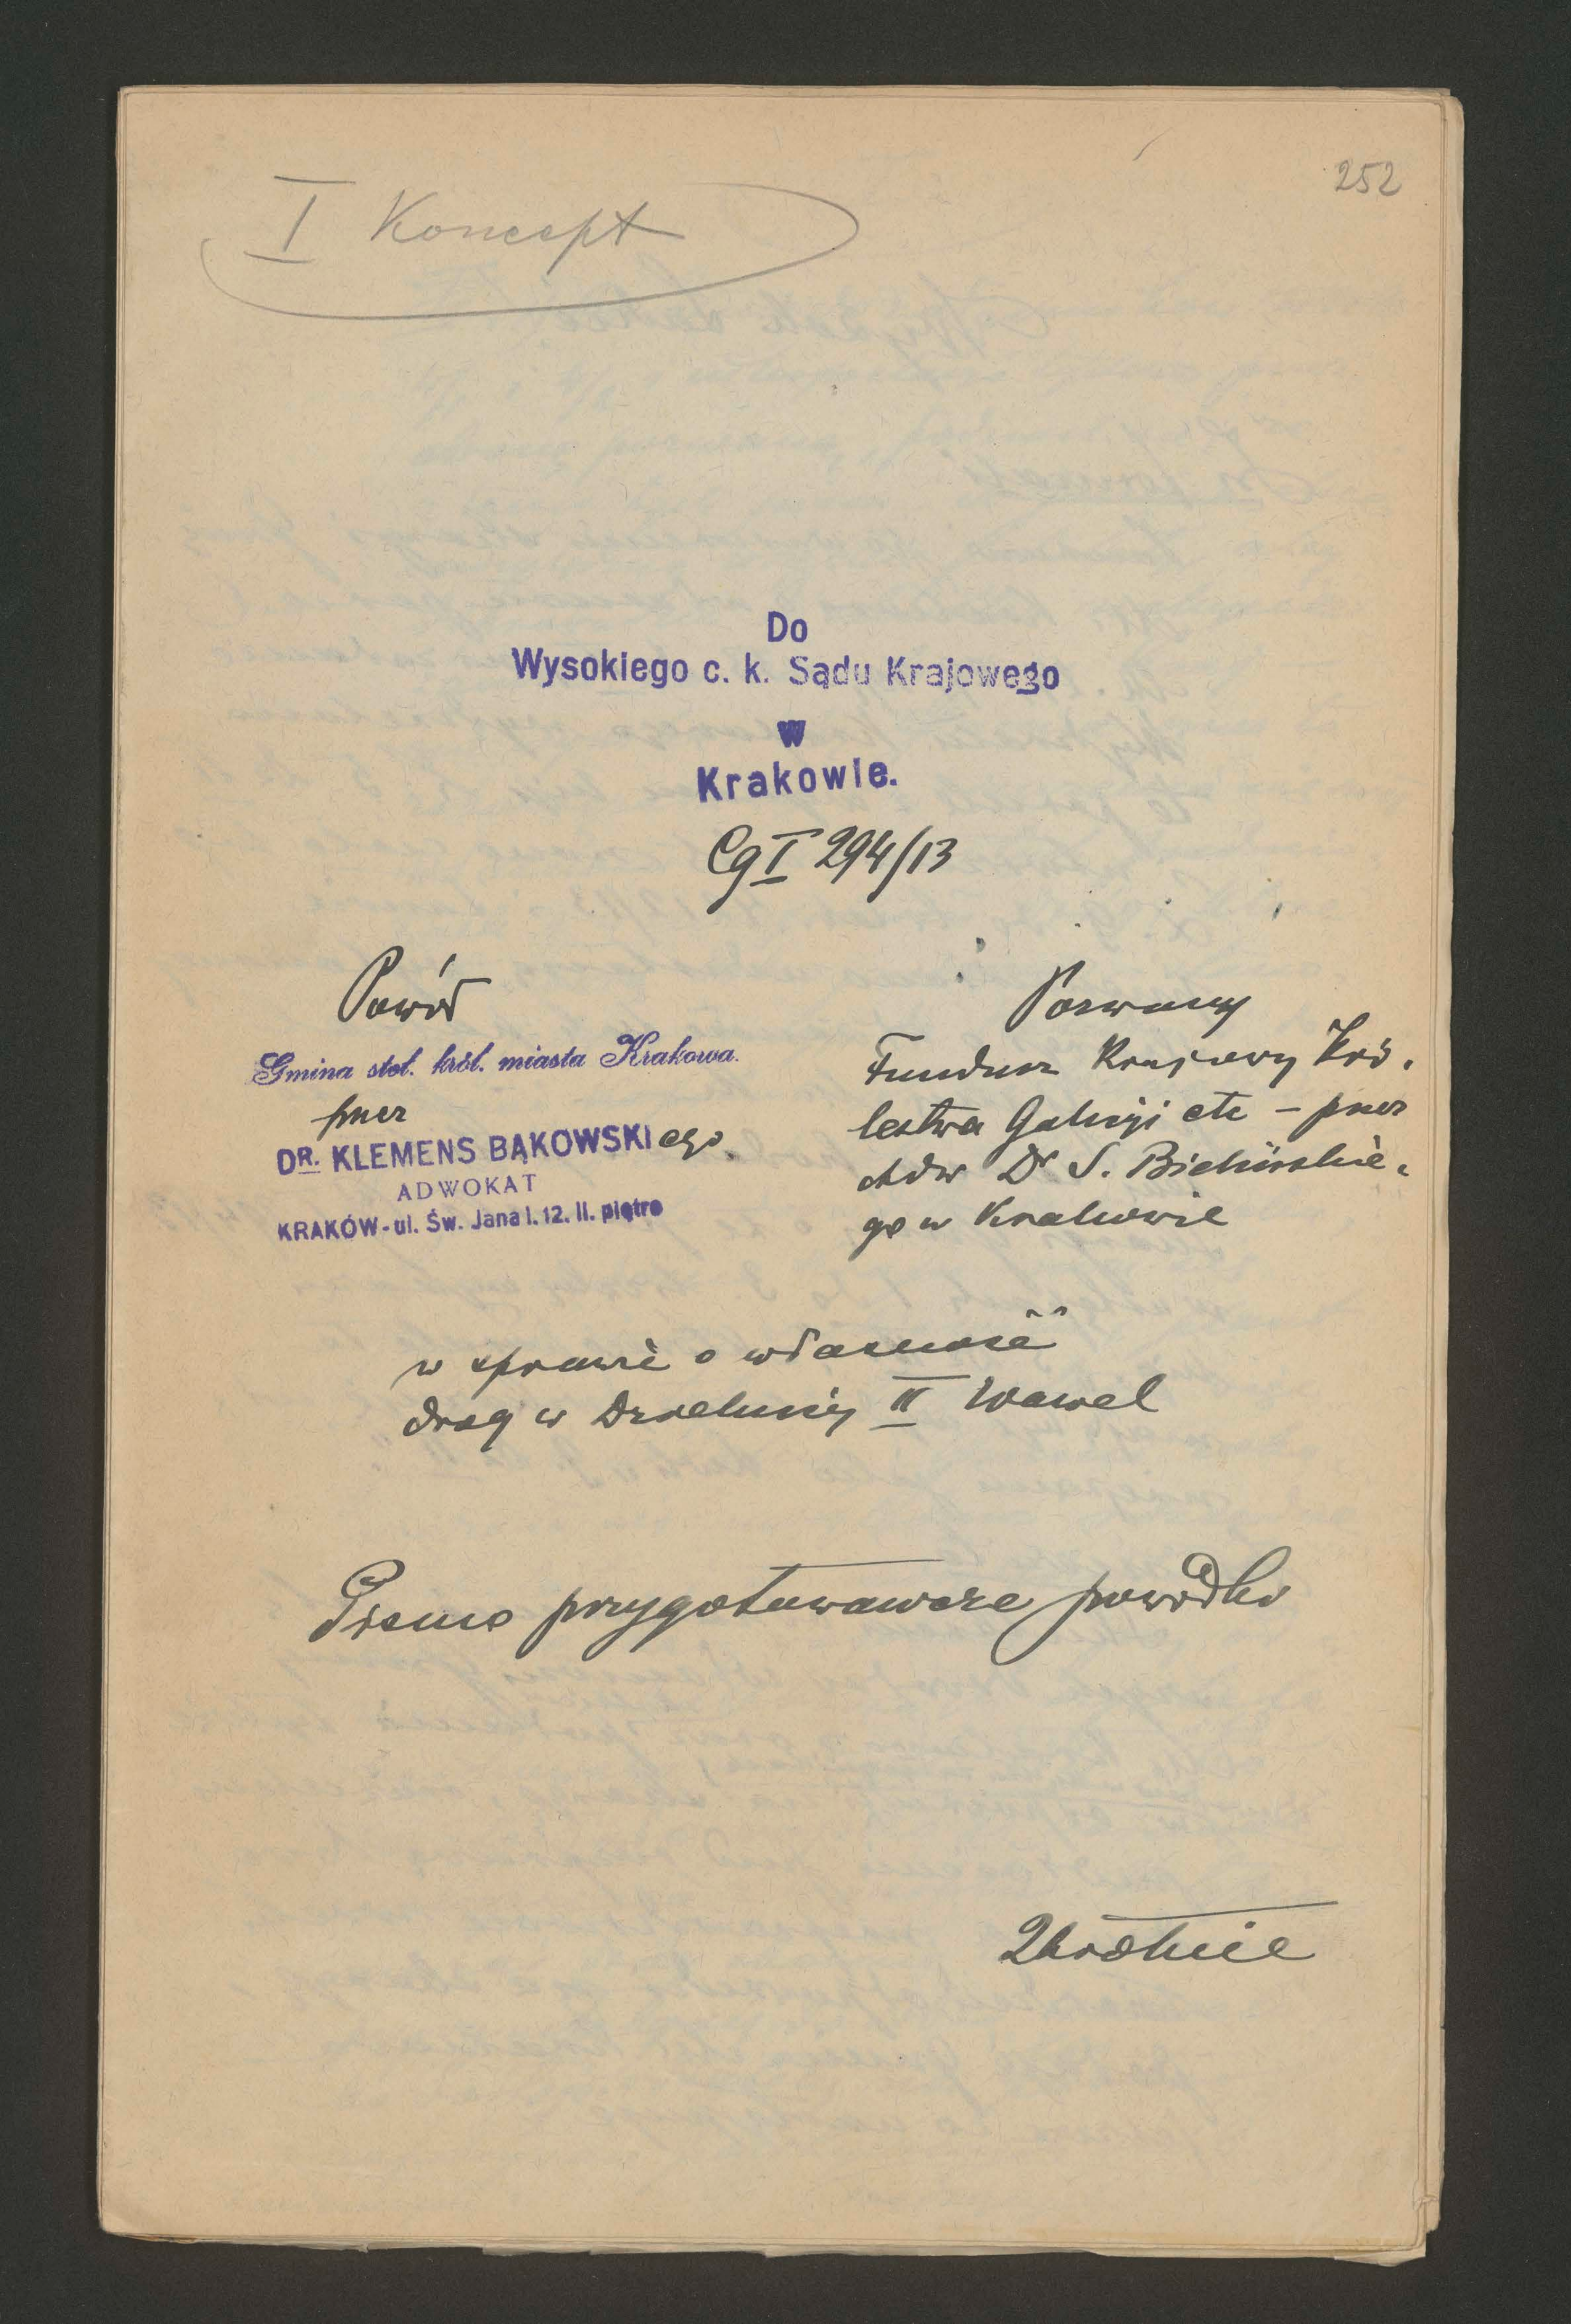 252
I Koncept
Do
Wysokiego c. k. Sądu Krajowego
w
Krakowie.
Cg I 294/13
Powód
Gmina stoł. król. miasta Krakowa.
przez
DR. KLEMENS BĄKOWSKIego
ADWOKAT
KRAKÓW - ul. Św. Jana l. 12. II. piętro
Pozwany
Fundusz Krajowy Kró-
lestwa Galicyi etc - przez
Adw Dr S.
go w Krakowie
w sprawie o własność
drog w Dzielnicy II Wawel
Pismo przygotowawcze powódki
2krotnie